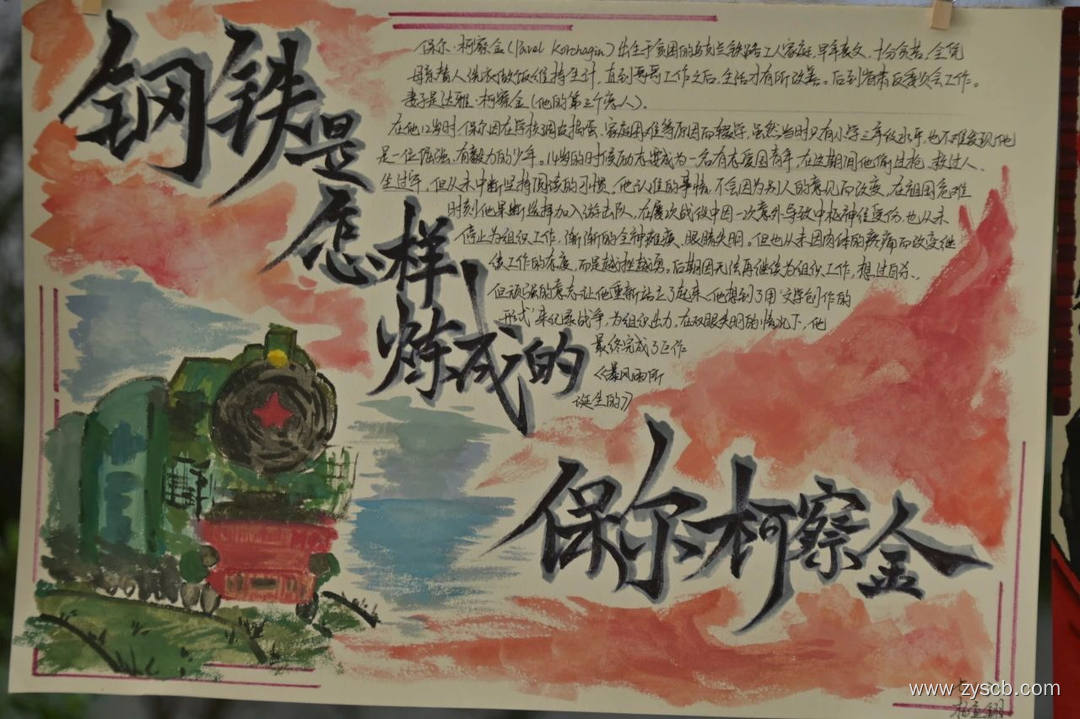 钢铁是怎样炼成的
保尔·柯察金(Pavel Korchagin)出生于贫困的乌克兰铁路工人家庭,早年丧父,十分贫苦,全凭
母亲替人洗衣做饭维持生计,直到哥哥工作之后,生活才有所改善。后到省肃反委员会工作。
妻子是达雅·柯察金(他的第三个恋人)。
在他12岁时保尔因在学校调皮捣蛋、家庭困难等原因而辍学,虽然当时只有小学三年级水平,也不难发现他
是一位倔强、有毅力的少年。14岁的时候励志要成为一名有志爱国青年,在这期间他偷过枪、救过人、
生过牢,但从未中断坚持阅读的习惯,他认准的事情,不会因为别人的意见而改变,在祖国危难
时刻他果断选择加入游击队,在屡次战役中因一次意外导致中枢神经受伤,也从未
停止为组织工作,渐渐的全身瘫痪、眼睛失明。但也从未因肉体的疼痛而改变继
续工作的态度,而是越挫越勇。后期因无法再继续为组织工作,想过自杀、
但顽强的意志让他重新站了起来,他想到了用“文学创作的
形式”来纪录战争,为组织出力,在双眼失明的情况下,他
最终完成了巨作
《暴风雨所
诞生的》
保尔柯察金
www.zyscb.com